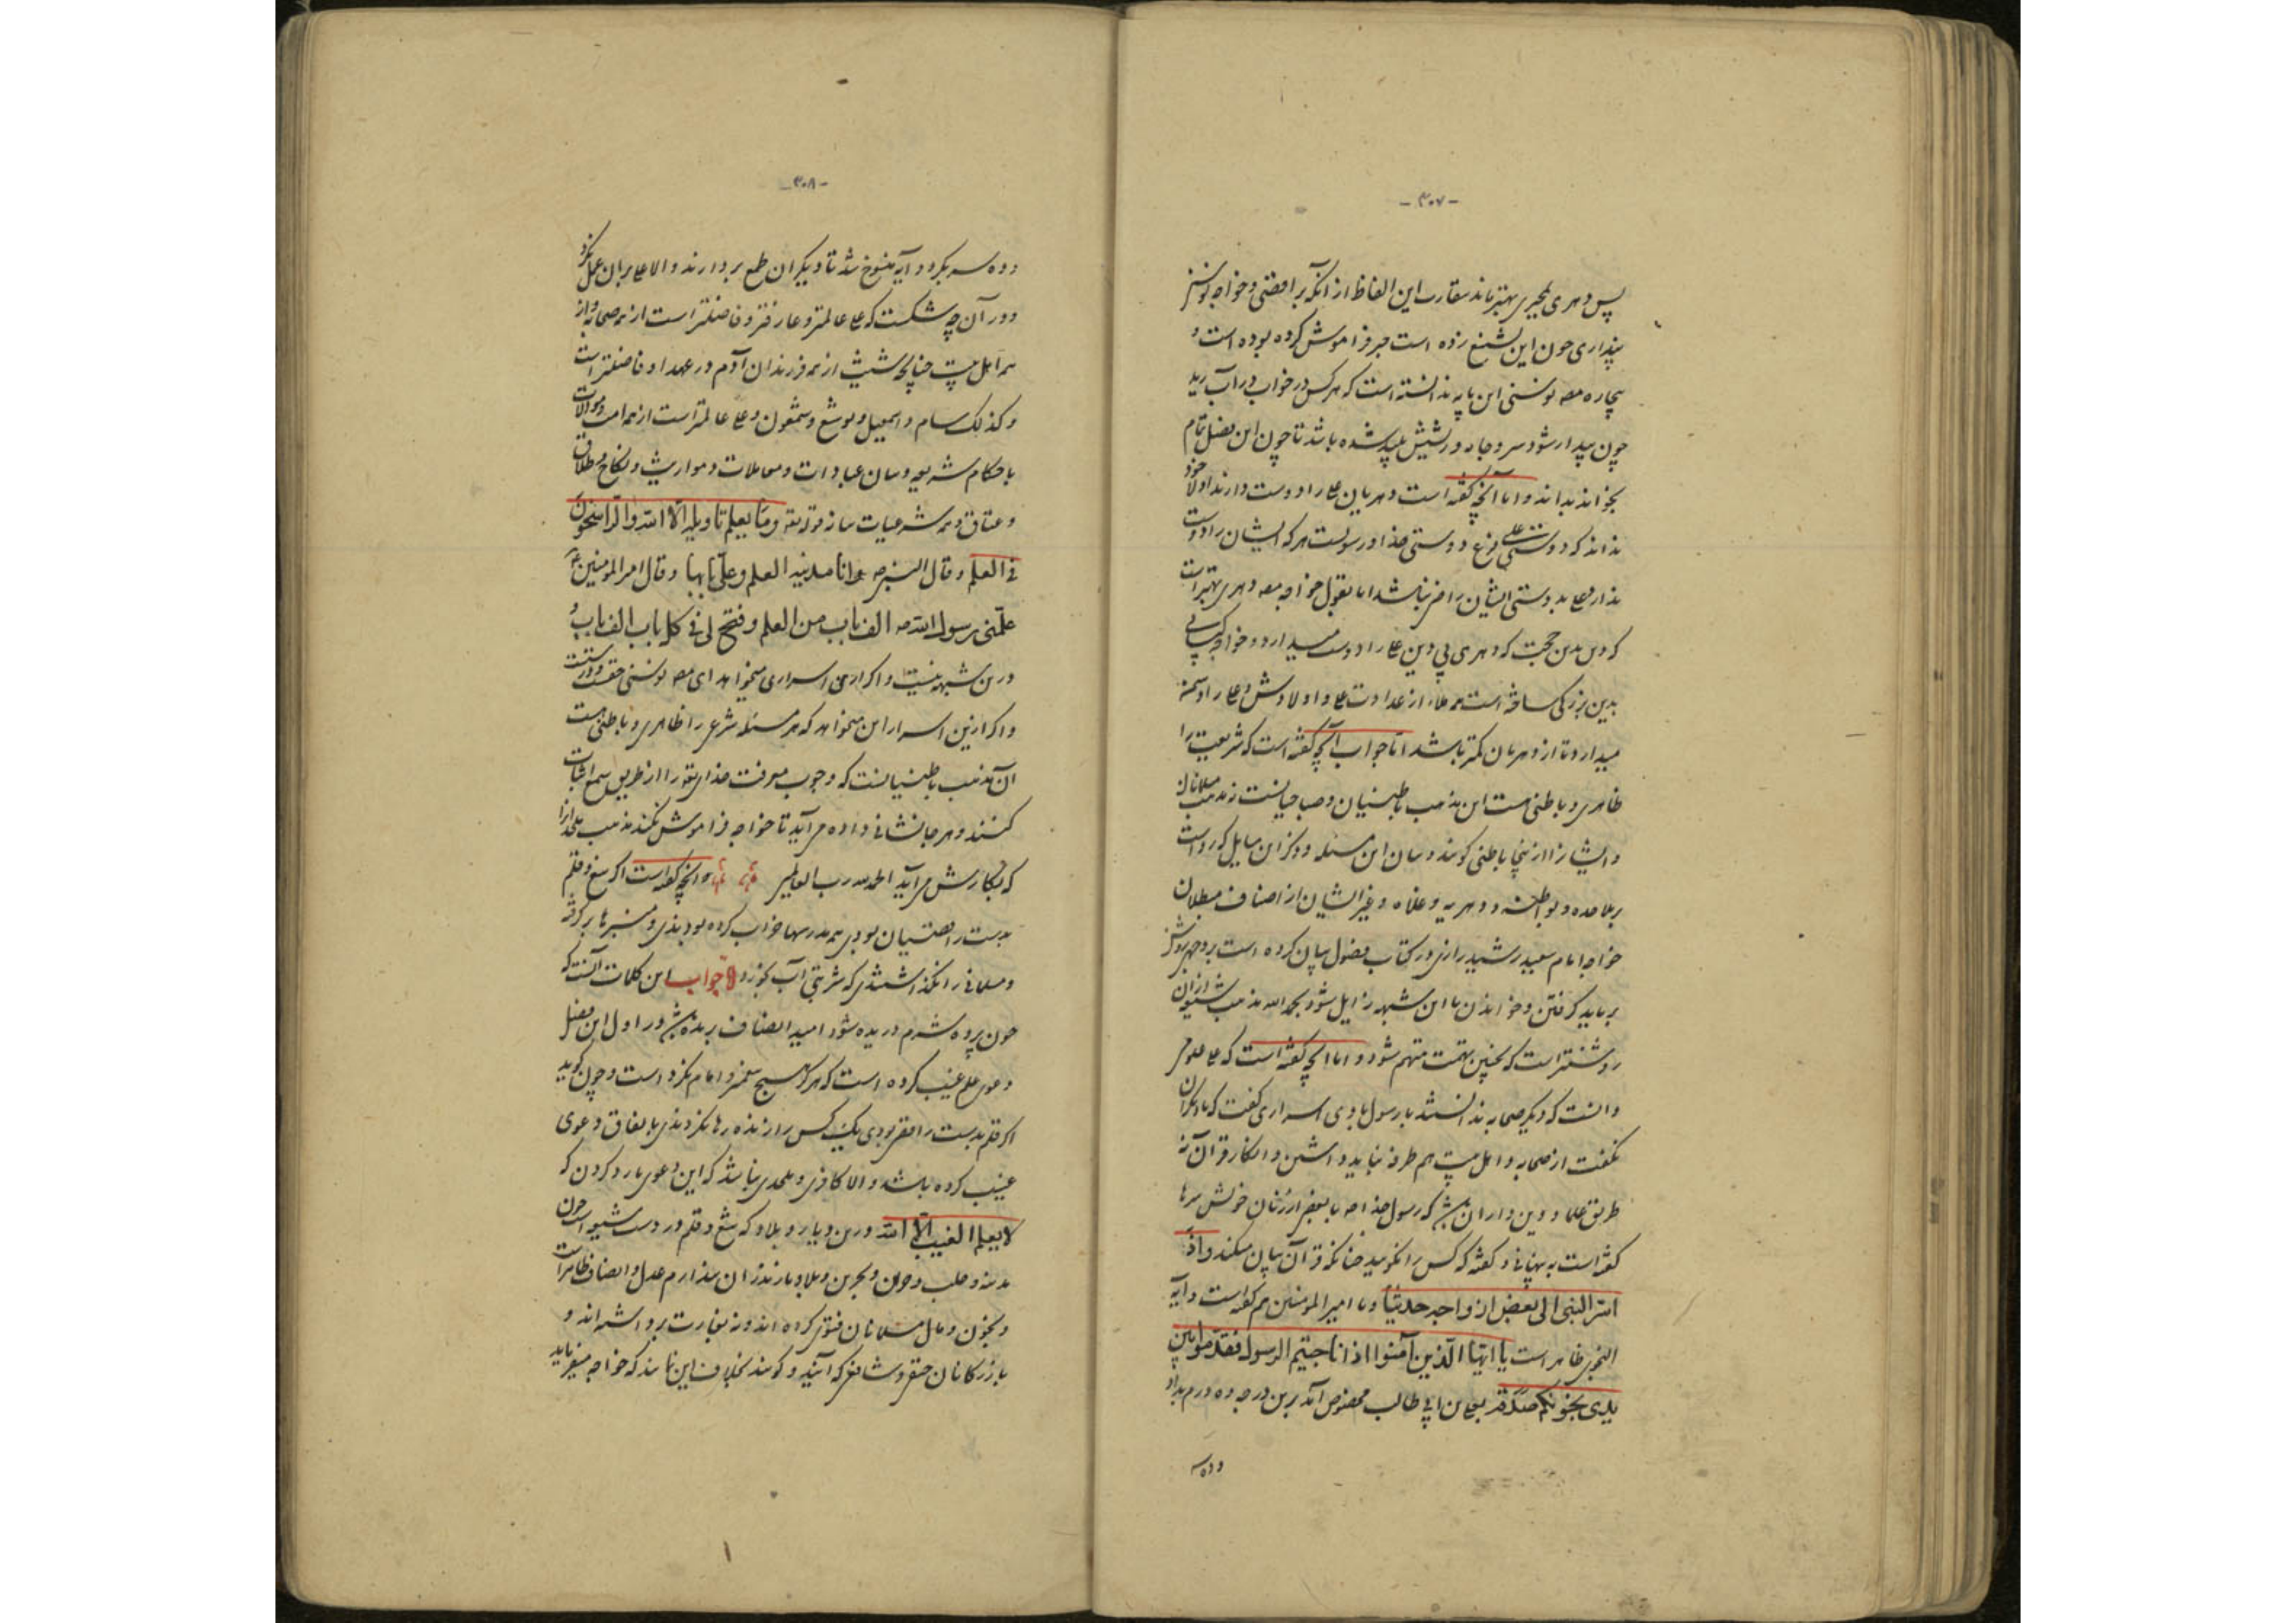 -۳۰۷-
پس دهری ملحدی بهتر باشد مقارب این الفاظ از آنکه رافضی و خواجه نوسنی
پنداری چون این تشنیع زده است جبر فراموش کرده بوده است و
بیچاره مصنف نوسنی این مایه ندانسته است که هر کس در خواب در آب رید
چون بیدار شود سر و جامه و ریشش پلید شده باشد تا چون این فصل تمام
بخواند بداند و اما آنچه گفته است دهریان علی را دوست دارند اولا خود
نداند که دوستی علی فرع دوستی خدا و رسولست هر که ایشان را دوست
ندارد علی بدوستی ایشان راضی نباشد اما بقول خواجه مصنف دهری بهتر است
که دهری بی دین علی را دوست میدارد و خواجه که سنی
بدین بزرگی ساخته است همه ملاء از عداوت علی و اولادش و علی را دشمن
میدارد تا از دهریان کمتر باشد اما جواب آنچه گفته است که شریعت را
ظاهری و باطنی هست این مذهب باطنیان و صباحیانست نه مذهب مسلمانان
و ایشانرا ازینجا باطنی گویند و بیان این مسئله و دیگر این مسایل که رد است
بر ملاحده و بواطنه و دهریه و غلاه و غیر ایشان از اصناف مبطلان
خواجه امام سعید رشید رازی در کتاب فصول بیان کرده است بر وجهی روشن
بر باید گرفتن و خواندن تا این شبهه زایل شود بحمد الله مذهب شیعیان از آن
روشنتر است که بچنین تهمت متهم شود و اما آنچه گفته است که علی علومی
دانست که دیگر صحابه ندانستند یا رسول با وی اسراری گفت که با دیگران
نگفت از صحابه و اهل بیت هم طرفه نباید داشتن و انکار قرآن نه
طریق علما و دین داران باشد که رسول خدا ص با بعضی از زنان خویش سرها
گفته است به پنهانی و گفته که کس را نگویید چنانکه قرآن بیان میکند و اذ
اسر النبی الی بعض ازواجه حدیثا و با امیر المومنین هم گفته است و آیه
النجوی ظاهر است یا ایها الذین آمنوا اذا ناجیتم الرسول فقدموا بین
یدی نجویکم صدقة بعلی بن ابی طالب مخصوص آمد برین درجه ده درم بداد
و ده سه
-۳۰۸-
و ده سه بکرد و آیه منسوخ شد تا دیگران طمع بردارند و الا علی بر آن عمل نکرد
و در آن چه شکست که علی عالمتر و عارفتر و فاضلتر است از همه صحابه و از
همه اهل بیت چنانکه شیث از همه فرزندان آدم در عهد او فاضلتر است
و کذلک سام و اسمعیل و یوشع و شمعون و علی عالمتر است از همه امت و سوالات
باحکام شریعه و بیان عبادات و معاملات و مواریث و نکاح و طلاق
و عتاق و همه شرعیات بیان قوله و ما یعلم تاویله الا الله و الراسخون
فی العلم و قال النبی ص انا مدینة العلم و علی بابها و قال امیر المومنین ع
علمنی رسول الله ص الف باب من العلم و فتح لی فی کل باب الف باب و
درین شبهه نیست و اگر از این اسراری میخواهد ای مصنف نوسنی حقست و درست
و اگر ازین اسرار این میخواهد که هر مسئله شرعی را ظاهری و باطنی هست
آن مذهب باطنیانست که وجوب معرفت خدای تعالی را از طریق سمع اثبات
کنند و هر جا نشانی داده می آید تا خواجه فراموش نکند مذهب ملحدان را
که بکارش می آید الحمد لله رب العالمین و آنچه گفته است اگر تیغ و قلم
بدست رافضیان بودی همه مدرسها خراب کرده بودندی و منبرها بر کنده
و مسلمانی را نگذاشتندی که شربتی آب خورد جواب این کلمات آنست که
چون پرده شرم دریده شود امید انصاف بریده باشد در اول این فصل
دعوی علم غیب کرده است که هرگز هیچ پیغمبر و امام نکرده است و چون گوید
اگر قلم بدست رافضی بودی یک کس را زنده رها نکردندی باتفاق دعوی
غیب کرده باشد و الا کافری و ملحدی نباشد که این دعوی یارد کردن که
لا یعلم الغیب الا الله درین دیار و بلاد که تیغ و قلم در دست شیعه است چون
مدینه و حلب و حران و بحرین و بلاد مازندران بنداریم عدل و انصاف ظاهر است
و بخون و مال مسلمانان فتوی نکرده اند و نه بغارت برداشته اند و
بازرگانان حنفی و شافعی که آیند و گویند بخلاف این باشد که خواجه میفرماید